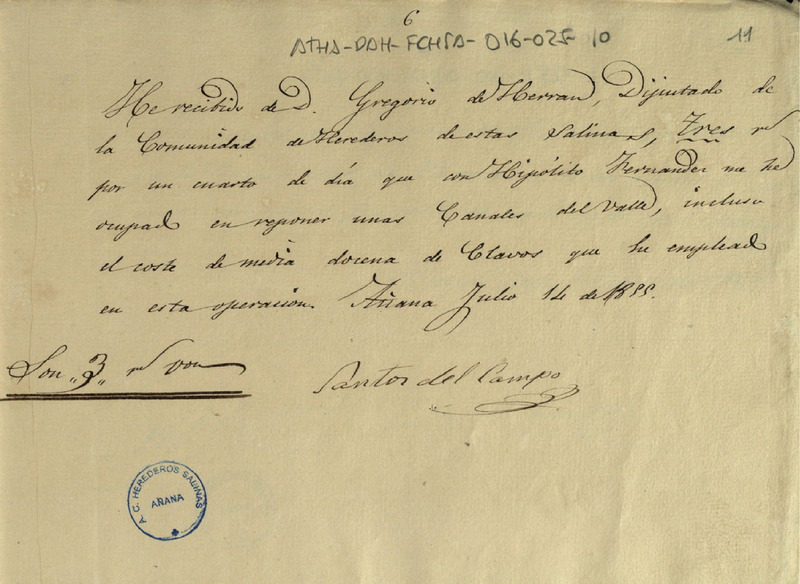 6
ATHA-DAH-FCHSA-016-025-10
11
He recibido de D. Gregorio de Herran, Diputado de
la Comunidad de Herederos de estas Salinas, tres rs
por un cuarto de día que con Hipólito Fernandez me he
ocupado en reponer unas Canales del Valle, incluso
el coste de media docena de Clavos que he empleado
en esta operación. Añana Julio 14 de 1855.
Santos del Campo
Son "3" rs von
A.C. HEREDEROS SALINAS
AÑANA